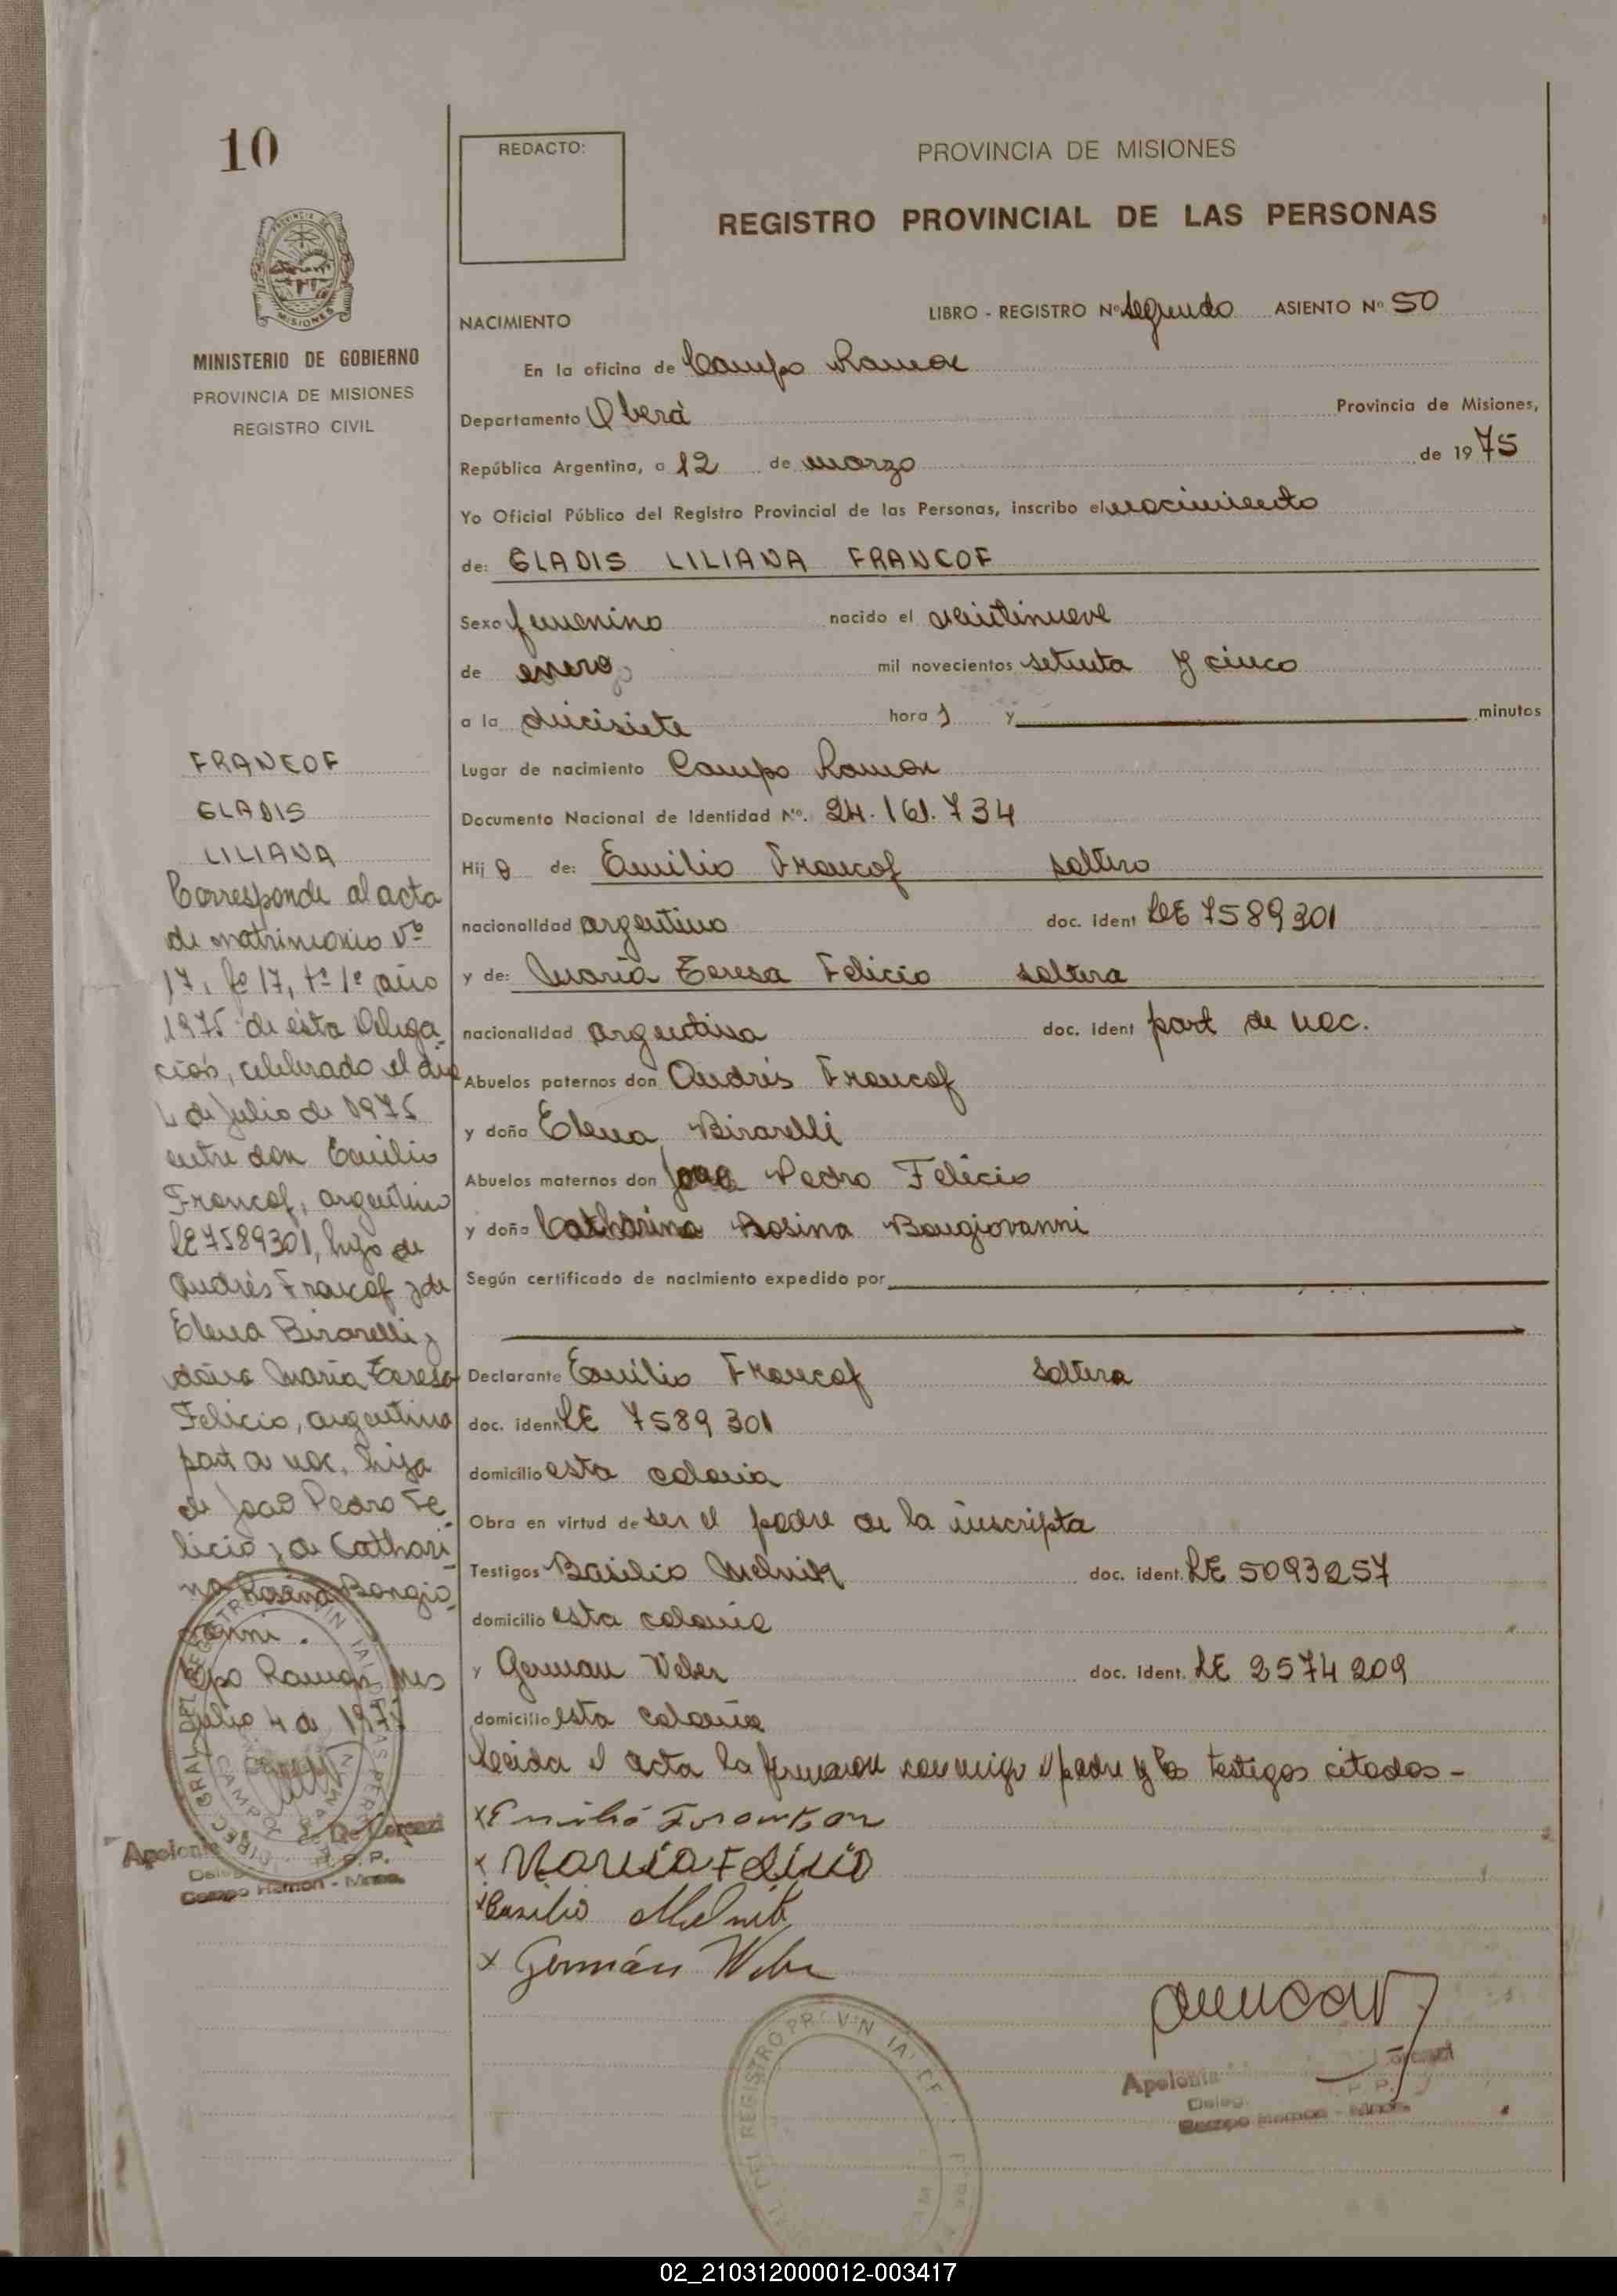 10
REDACTO:
PROVINCIA DE MISIONES
REGISTRO PROVINCIAL DE LAS PERSONAS
PROVINCIA DE
MISIONES
MINISTERIO DE GOBIERNO
PROVINCIA DE MISIONES
REGISTRO CIVIL
LIBRO - REGISTRO Nº Segundo ASIENTO Nº 50
NACIMIENTO
En la oficina de Campo Ramon
Departamento Oberá Provincia de Misiones,
República Argentina, a 12 de marzo de 1975
Yo Oficial Público del Registro Provincial de las Personas, inscribo el nacimiento
de: GLADIS LILIANA FRANCOF
Sexo femenino nacido el veintinueve
de enero mil novecientos setenta y cinco
a la diecisiete hora s y minutos
Lugar de nacimiento Campo Ramon
Documento Nacional de Identidad Nº. 24.161.734
Hij a de: Emilio Francof soltero
nacionalidad argentino doc. ident LE 7589301
y de: María Teresa Felicio soltera
nacionalidad argentina doc. ident part de nac.
Abuelos paternos don Andrés Francof
y doña Elena Birarelli
Abuelos maternos don Joao Pedro Felicio
y doña Catharina Rosina Bongiovanni
Según certificado de nacimiento expedido por
Declarante Emilio Francof soltero
doc. ident LE 7589301
domicilio esta colonia
Obra en virtud de ser el padre de la inscripta
Testigos Basilio Melnik doc. ident. LE 5093257
domicilio esta colonia
y German Weber doc. ident. LE 2574209
domicilio esta colonia
Leida el acta la firmaron conmigo el padre y los testigos citados -
x Emilio
x Maria Felicio
x Basilio Melnik
x Germán Weber
Apolonia
Deleg.
Campo Ramon - Mnes.
FRANCOF
GLADIS
LILIANA
Corresponde al acta
de matrimonio Nº
17, fº 17, tº 1º año
1975 de esta Delega-
ción, celebrado el dia
4 de Julio de 1975
entre don Emilio
Francof, argentino
LE 7589301, hijo de
Andrés Francof y de
Elena Birarelli y
doña María Teresa
Felicio, argentina
part de nac. hija
de Joao Pedro Fe-
licio y de Cathari-
na Rosina Bongio-
vanni.
Cpo Ramon Mnes
Julio 4 de 1975
Apolonia De
R. P. P.
Campo Ramon - Mnes.
02_210312000012-003417